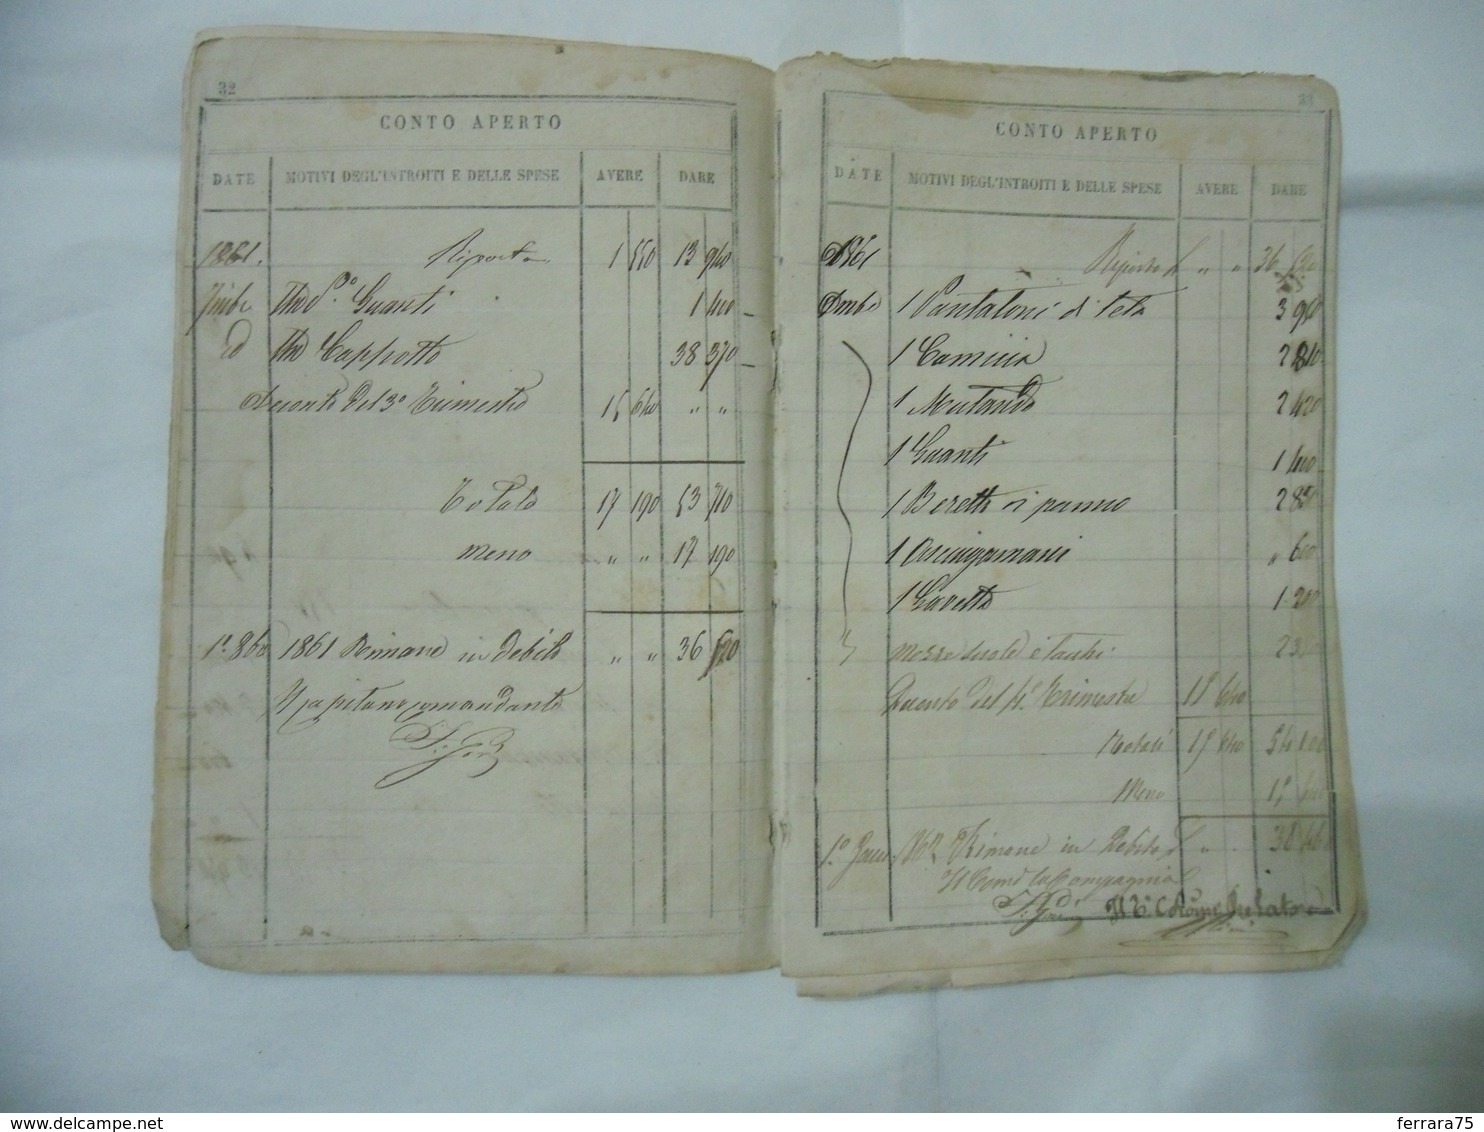 32
CONTO APERTO
DATE MOTIVI DEGL'INTROITI E DELLE SPESE AVERE DARE
1861. Riporto 1 550 13 940
Guanti 1 400
Id Cappotto 38 370
Sconto del 3º Trimestre 15 640 " "
Totale 17 190 53 710
Meno " " 17 190
1º 8bre 1861 Rimane in debito " " 36 520
Il Capitano Comandante
33
CONTO APERTO
DATE MOTIVI DEGL'INTROITI E DELLE SPESE AVERE DARE
1861 Riporto £ " " 36 520
1 Pantaloni di tela 3 960
1 Camicia 2 810
1 Mutande 2 420
1 Guanti 1 400
1 Beretto di panno 2 850
1 Asciugamani " 600
1 Gavetta 1 200
Mezze suole e tacchi
Sconto del 4º Trimestre 15 640
Totali 15 640
Meno 15 640
1º 1862 Rimane in Debito £ " "
Il Comd la Compagnia
ferrara75